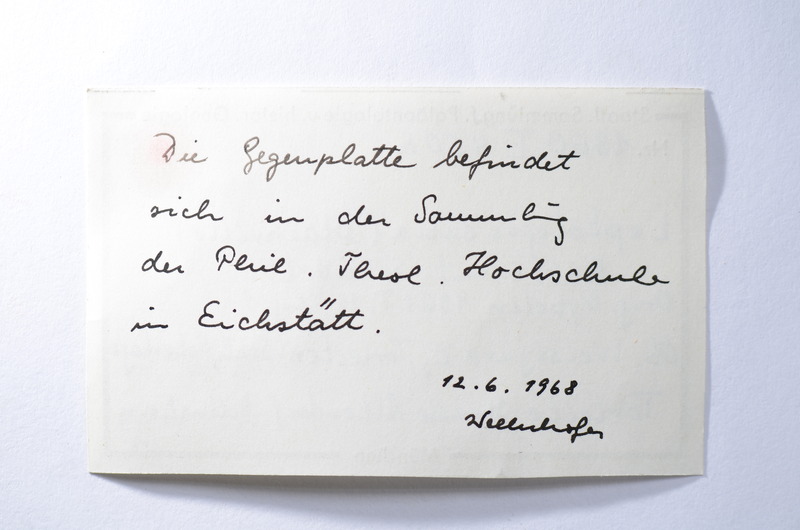 Die Gegenplatte befindet
sich in der Sammlung
der Phil. Theol. Hochschule
in Eichstätt.
12.6.1968
Wellnhofer